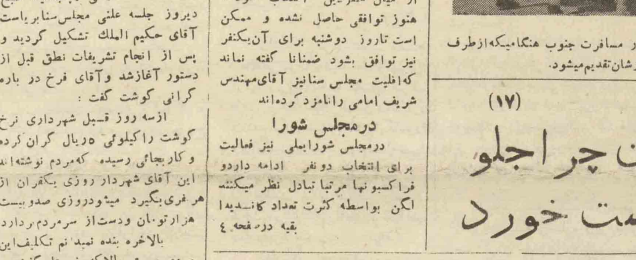 ر مسافرت جنوب هنگامیکه ازطرف
رشان تقدیم میشود.
(۱۷)
ن چرا جلو
ست خورد
هنوز توافقی حاصل نشده و ممکن
است تاروز دوشنبه برای آن یکنفر
نیز توافق بشود ضمنا ناگفته نماند
که اقلیت مجلس سنا نیز آقای مهندس
شریف امامی را نامزد کرده اند
در مجلس شورا
در مجلس شورایملی نیز فعالیت
برای انتخاب دو نفر ادامه دارد و
فراکسیونها مرتبا تبادل نظر میکنند
لکن بواسطه کثرت تعداد کاندیدا
بقیه در صفحه ٤
دیروز جلسه علنی مجلس سنا بریاست
آقای حکیم الملک تشکیل گردید و
پس از انجام تشریفات نطق قبل از
دستور آغاز شد و آقای فرخ در باره
گرانی گوشت گفت :
از سه روز قبل شهرداری نرخ
گوشت را کیلوئی ۵ ریال گران کرده
و کار بجائی رسیده که مردم نوشته اند
این آقای شهردار روزی یکقران از
هر فری بگیرد میشود روزی صد و بیست
هزار تومان و دست از سر مردم بردارد
بالاخره بنده نمیدانم تکلیف این